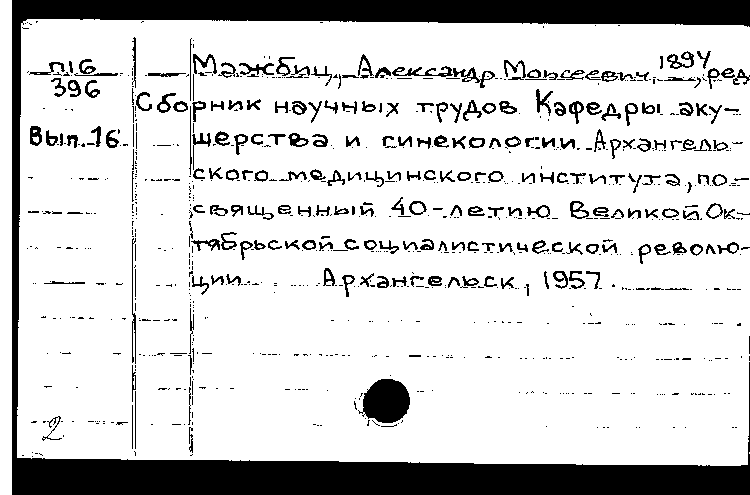 П16
396
Вып. 16
Мажбиц, Александр Моисеевич, 1894, ред.
Сборник научных трудов Кафедры аку-
шерства и гинекологии Архангель-
ского медицинского института, по-
священный 40-летию Великой Ок-
тябрьской социалистической револю-
ции. Архангельск, 1957.
2